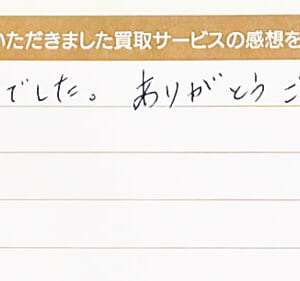 いただきました買取サービスの感想を
でした。ありがとうご